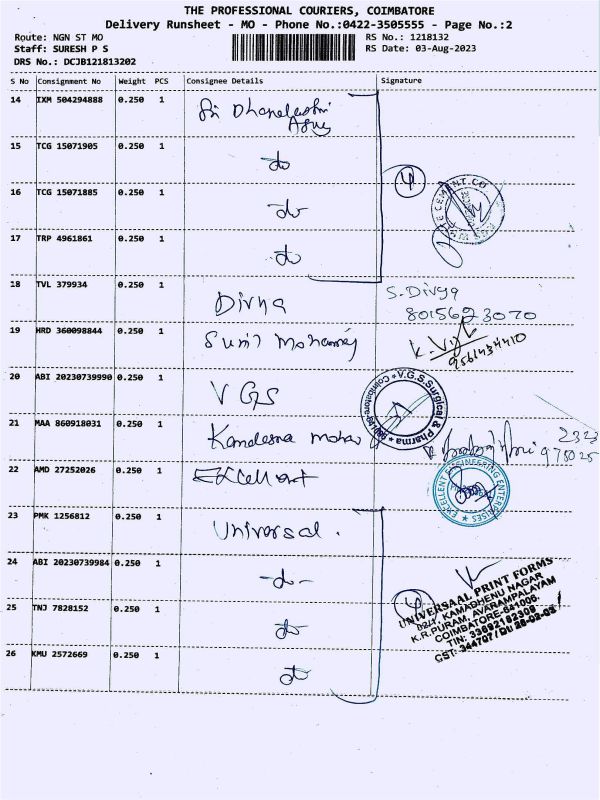 THE PROFESSIONAL COURIERS, COIMBATORE
Delivery Runsheet - MO - Phone No.:0422-3505555 - Page No.:2
Route: NGN ST MO
Staff: SURESH P S
DRS No.: DCJB121813202
RS No.: 1218132
RS Date: 03-Aug-2023
S No Consignment No Weight PCS Consignee Details Signature
14 IXM 504294888 0.250 1 Sri
15 TCG 15071905 0.250 1 do
4
16 TCG 15071885 0.250 1 -do-
CEMENT CO
17 TRP 4961861 0.250 1 do
18 TVL 379934 0.250 1 Divya S. Divya
8015623070
19 HRD 360098844 0.250 1 Sunil K. Vijay
9561434410
20 ABI 20230739990 0.250 1 VGS
V.G.S. Surgical & Pharma
Coimbatore
21 MAA 860918031 0.250 1 2323
975025
22 AMD 27252026 0.250 1 Excellent
EXCELLENT ENGINEERING ENTERPRISES
23 PMK 1256812 0.250 1 Universal.
24 ABI 20230739984 0.250 1 -do-
4
UNIVERSAAL PRINT FORMS
02/7, KAMADHENU NAGAR
K.R.PURAM, AVARAMPALAYAM
COIMBATORE-641006.
TIN: 33692182309
CST: 344707 / Dt: 28-02-95
25 TNJ 7828152 0.250 1 do
26 KMU 2572669 0.250 1 do